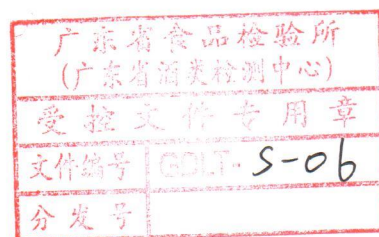 广东省食品检验所
(广东省酒类检测中心)
受控文件专用章
文件编号 GDLT- S-06
分发号